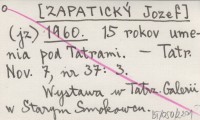 [ZAPATICKÝ Jozef]
(jz) 1960. 15 rokov ume-
nia pod Tatrami. – Tatr.
Nov. 7, nr 37: 3.
Wystawa w Tatra-Galerii
w Starym Smokowcu.